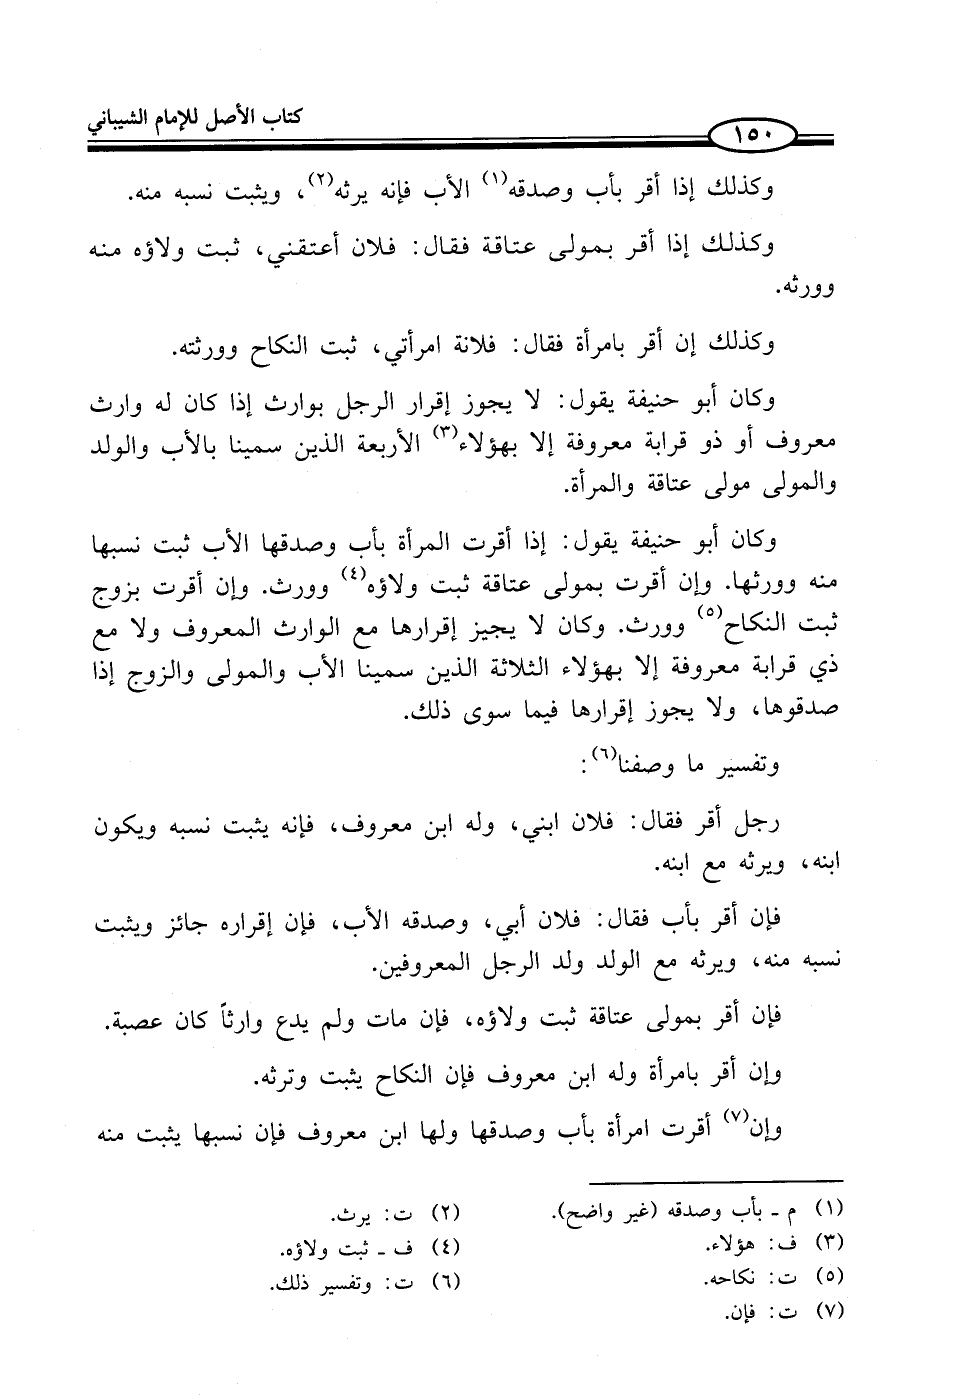 كتاب الأصل للإمام الشيباني
١٥٠
وكذلك إذا أقر بأب وصدقه(١) الأب فإنه يرثه(٢)، ويثبت نسبه منه.
وكذلك إذا أقر بمولى عتاقة فقال: فلان أعتقني، ثبت ولاؤه منه
وورثه.
وكذلك إن أقر بامرأة فقال: فلانة امرأتي، ثبت النكاح وورثته.
وكان أبو حنيفة يقول: لا يجوز إقرار الرجل بوارث إذا كان له وارث
معروف أو ذو قرابة معروفة إلا بهؤلاء(٣) الأربعة الذين سمينا بالأب والولد
والمولى مولى عتاقة والمرأة.
وكان أبو حنيفة يقول: إذا أقرت المرأة بأب وصدقها الأب ثبت نسبها
منه وورثها. وإن أقرت بمولى عتاقة ثبت ولاؤه(٤) وورث. وإن أقرت بزوج
ثبت النكاح(٥) وورث. وكان لا يجيز إقرارها مع الوارث المعروف ولا مع
ذي قرابة معروفة إلا بهؤلاء الثلاثة الذين سمينا الأب والمولى والزوج إذا
صدقوها، ولا يجوز إقرارها فيما سوى ذلك.
وتفسير ما وصفنا(٦):
رجل أقر فقال: فلان ابني، وله ابن معروف، فإنه يثبت نسبه ويكون
ابنه، ويرثه مع ابنه.
فإن أقر بأب فقال: فلان أبي، وصدقه الأب، فإن إقراره جائز ويثبت
نسبه منه، ويرثه مع الولد ولد الرجل المعروفين.
فإن أقر بمولى عتاقة ثبت ولاؤه، فإن مات ولم يدع وارثاً كان عصبة.
وإن أقر بامرأة وله ابن معروف فإن النكاح يثبت وترثه.
وإن(٧) أقرت امرأة بأب وصدقها ولها ابن معروف فإن نسبها يثبت منه
(١) م ـ بأب وصدقه (غير واضح). (٢) ت: يرث.
(٣) ف: هؤلاء. (٤) ف ـ ثبت ولاؤه.
(٥) ت: نكاحه. (٦) ت: وتفسير ذلك.
(٧) ت: فإن.